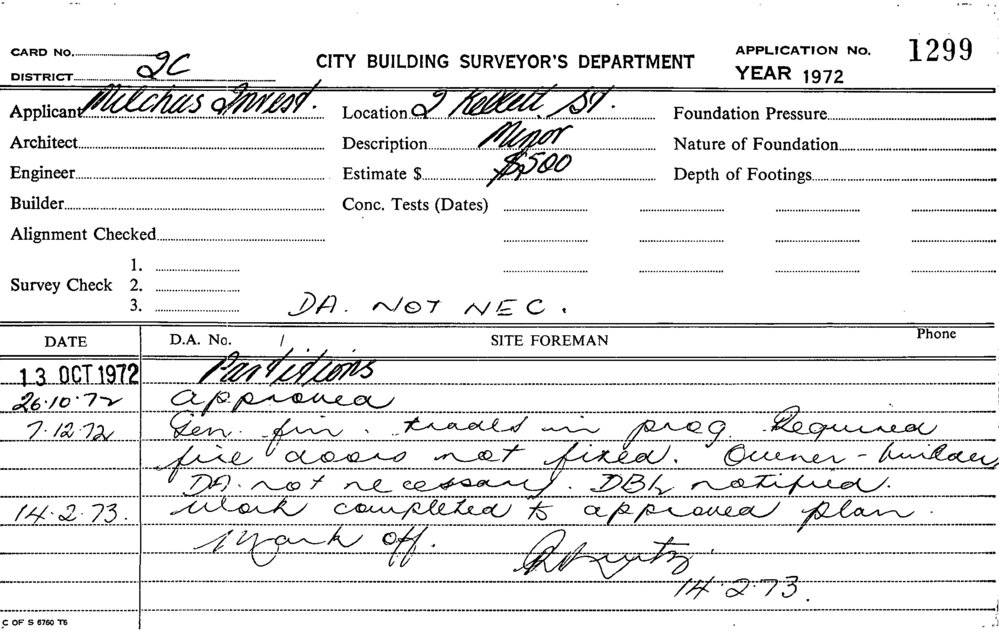 CARD NO.
DISTRICT 2C
CITY BUILDING SURVEYOR'S DEPARTMENT
APPLICATION No. 1299
YEAR 1972
Applicant Milchus Invest.
Location 2 Kellett St.
Foundation Pressure
Architect
Description Minor
Nature of Foundation
Engineer
Estimate $ $500
Depth of Footings
Builder
Conc. Tests (Dates)
Alignment Checked
Survey Check
1.
2.
3.
DA. NOT NEC.
DATE D.A. No. / SITE FOREMAN Phone
13 OCT 1972 Partitions
26.10.72 approved
7.12.72 Gen. fin. trades in prog. Required
fire doors not fixed. Owner-builder,
DA. not necessary. DBL notified.
14.2.73. Work completed to approved plan.
Mark off.
14.2.73.
C OF S 6760 T6